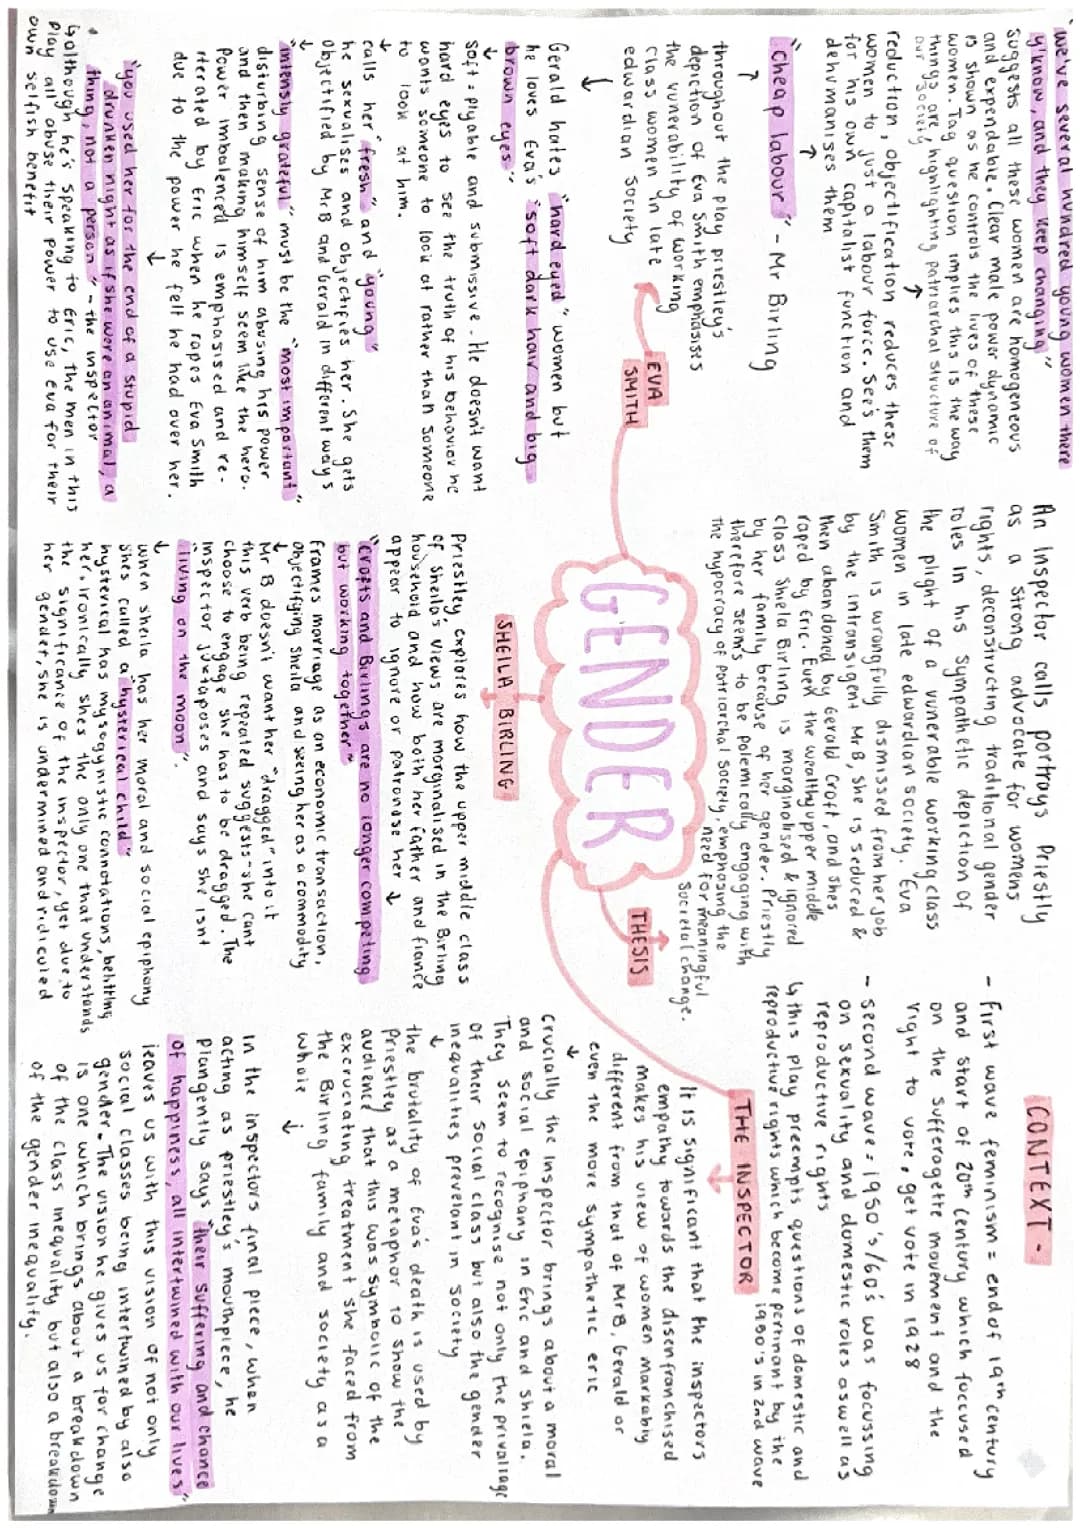 "we've several hundred young women there
y'know, and they keep changing"
suggests all these women are homogenous
and expendable. Clear male power dynamic
is shown as he controls the lives of these
women. Tag question implies this is the way
things are, highlighting patriarchal structure of
our society
reduction, objectification reduces these
women to just a labour force. See's them
for his own capitalist function and
dehumanises them
"cheap labour" - Mr Birling
throughout the play priestley's
depiction of Eva Smith emphasises
the vunerability of working
class women in late
edwardian society
EVA
SMITH
Gerald hates "hard eyed" women but
he loves Eva's "soft dark hair and big
brown eyes"
soft = plyable and submissive. He doesn't want
hard eyes to see the truth of his behavior he
wants someone to look at rather than someone
to look at him.
calls her "fresh" and "young"
he sexualises and objectifies her. She gets
objectified by Mr B and Gerald in different ways
"intensly grateful" must be the "most important"
disturbing sense of him abusing his power
and then making himself seem like the hero.
Power imbalenced is emphasised and re-
iterated by Eric when he rapes Eva Smith
due to the power he felt he had over her.
"you used her for the end of a stupid
drunken night as if she were an animal, a
thing, not a person" - the inspector
Although he's speaking to Eric, the men in this
play all abuse their power to use Eva for their
own selfish benefit
GENDER
THESIS
An Inspector calls portrays Priestly
as a strong advocate for womens
rights, deconstructing traditional gender
roles in his sympathetic depiction of
the plight of a vunerable working class
women in late edwardian society. Eva
Smith is wrongfully dismissed from her job
by the intransigent Mr B, she is seduced &
then abandoned by Gerald Croft, and shes
raped by Eric. Even the wealthy upper middle
class Shiela Birling is marginalised & ignored
by her family because of her gender. Priestly
therefore seem's to be polemically engaging with
the hypocracy of patriarchal society, emphasing the
need for meaningful
societal change.
SHEILA BIRLING
Priestley, explores how the upper middle class
of Sheila's views are marginalised in the Birling
household and how both her father and fiance
appear to ignore or patronise her
"Crofts and Birlings are no longer competing
but working together"
frames marriage as an economic transaction,
objectifying Sheila and seeing her as a commodity
Mr B doesn't want her "dragged" into it
this verb being repeated suggests - she cant
choose to engage she has to be dragged. The
inspector juxtaposes and says she isnt
"living on the moon".
when sheila has her moral and social epiphony
shes called a "hysterical child"
hysterical has mysogynistic connotations, belittling
her, ironically shes the only one that understands
the significance of the inspector yet due to
her gender, she is undermined and ridiculed
CONTEXT -
- First wave feminism = end of 19th century
and start of 20th century which foccused
on the sufferogette movement and the
right to vote, get vote in 1928
- second wave = 1950's/60's was focussing
on sexuality and domestic roles aswell as
reproductive rights
↳ this play preempts questions of domestic and
reproductive rights which become pertinant by the
1950's in 2nd wave
THE INSPECTOR
It is significant that the inspectors
empathy towards the disenfranchised
makes his view of women markably
different from that of Mr B, Gerald or
even the more sympathetic eric
crucially the inspector brings about a moral
and social epiphany in Eric and Sheila.
They seem to recognise not only the privallage
of their social class but also the gender
inequalites prevelant in society
the brutality of Eva's death is used by
Priestley as a metaphor to show the
audience that this was symbolic of the
excruciating treatment she faced from
the Birling family and society as a
whole
In the inspectors final piece, when
acting as priestley's mouthpiece, he
plangently says "their suffering and chance
of happiness, all intertwined with our lives"
leaves us with this vision of not only
social classes being intertwined by also
gender - The vision he gives us for change
is one which brings about a breakdown
of the class inequality but also a breakdown
of the gender inequality.